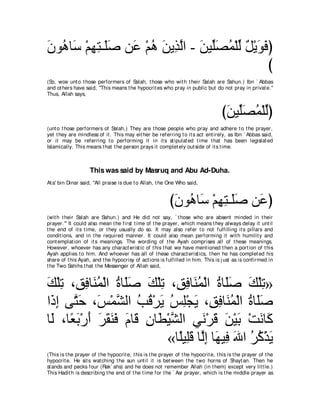 (فَوَيْلٌ لِّلْمُصَلِّينَ - الَّذِينَ هُمْ عَن صَلَـتِهِمْ سَاهُونَ
)
(So, woe unto those performers of Salah, those who with their Salah are Sahun.) Ibn `Abbas
and others have said, "This means the hypocrites who pray in public but do not pray in private.''
Thus, Allah says,
(لِّلْمُصَلِّينَ)
(unto those performers of Salah.) They are those people who pray and adhere to the prayer,
yet they are mindless of it. This may either be referring to its act entirely, as Ibn `Abbas said,
or it may be referring to performing it in its stipulated time that has been legislated
Islamically. This means that the person prays it completely outside of its time.
This was said by Masruq and Abu Ad-Duha.
Ata' bin Dinar said, "All praise is due to Allah, the One Who said,
(عَن صَلَـتِهِمْ سَاهُونَ)
(with their Salah are Sahun.) and He did not say, `those who are absent minded in their
prayer.''' It could also mean the first time of the prayer, which means they always delay it until
the end of its time, or they usually do so. It may also refer to not fulfilling its pillars and
conditions, and in the required manner. It could also mean performing it with humility and
contemplation of its meanings. The wording of the Ayah comprises all of these meanings.
However, whoever has any characteristic of this that we have mentioned then a portion of this
Ayah applies to him. And whoever has all of these characteristics, then he has completed his
share of this Ayah, and the hypocrisy of actions is fulfilled in him. This is just as is confirmed in
the Two Sahihs that the Messenger of Allah said,
«تِلْكَ صَلَاةُ الْمُنَافِقِ، تِلْكَ صَلَاةُ الْمُنَافِقِ، تِلْكَ
صَلَاةُ الْمُنَافِقِ، يَجْلِسُ يَرْقُبُ الشَّمْسَ، حَتَّى إِذَا
كَانَتْ بَيْنَ قَرْنَيِ الشَّيْطَانِ قَامَ فَنَقَرَ أَرْبَعًا، لَا
يَذْكُرُ اللهَ فِيهَا إِلَّا قَلِيلًا»
(This is the prayer of the hypocrite, this is the prayer of the hypocrite, this is the prayer of the
hypocrite. He sits watching the sun until it is between the two horns of Shaytan. Then he
stands and pecks four (Rak`ahs) and he does not remember Allah (in them) except very little.)
This Hadith is describing the end of the time for the `Asr prayer, which is the middle prayer as